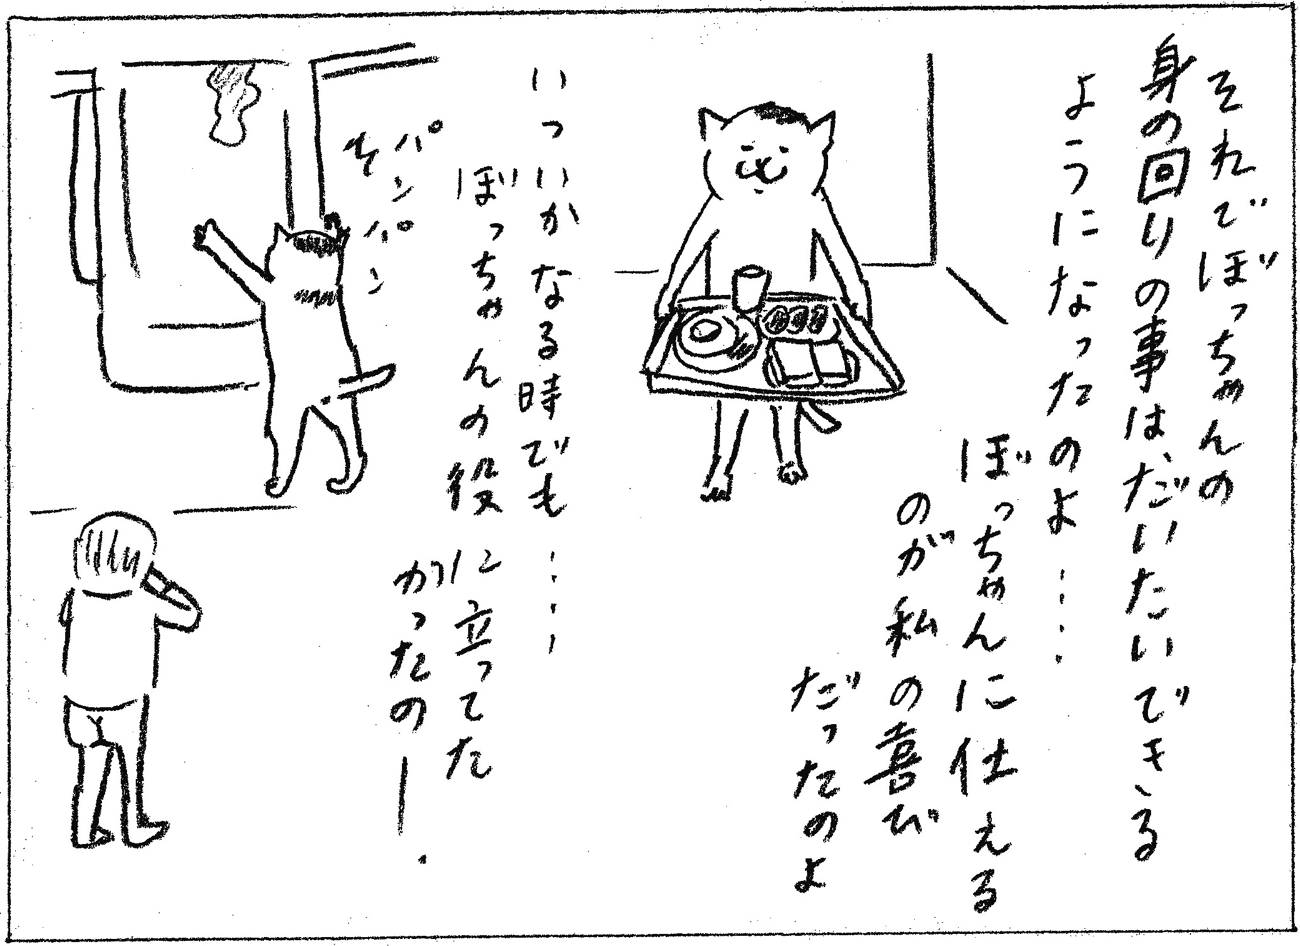 それでぼっちゃんの
身の回りの事は、だいたいできる
ようになったのよ……
ぼっちゃんに仕える
のが私の喜び
だったのよ
いついかなる時でも……
ぼっちゃんの役に立ってた
かったの―.
パンパン